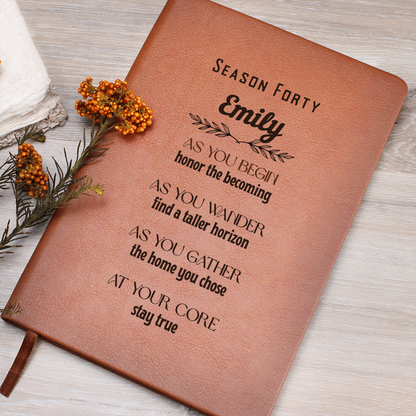 SEASON FORTY
Emily
AS YOU BEGIN
honor the becoming
AS YOU WANDER
find a taller horizon
AS YOU GATHER
the home you chose
AT YOUR CORE
stay true